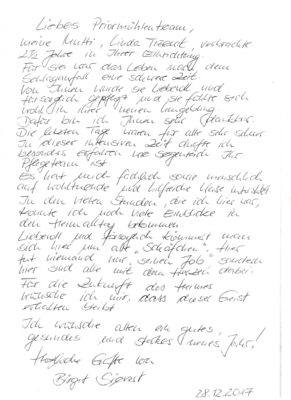 Liebes Priormühlenteam,
meine Mutti, Linda, verbrachte
2 1/2 Jahre in Ihrer Einrichtung
Für sie war das Leben nach dem
Schlaganfall eine schwere Zeit
Von Ihnen wurde sie liebevoll und
fürsorglich gepflegt und sie fühlte sich
wohl in ihrer neuen Umgebung
Dafür bin ich Ihnen sehr dankbar.
Die letzten Tage waren für alle sehr schwer
In dieser intensiven Zeit durfte ich
besonders erfahren wie segensreich Ihr
Pflegeteam ist
Es hat mich fachlich sowie menschlich
auf wohltuende und hilfreiche Weise unterstützt
In den vielen Stunden, die ich hier war,
konnte ich noch viele Einblicke in
den Heimalltag bekommen
Liebevoll und fürsorglich kümmert man
sich hier um alle "Schäfchen". Hier
tut niemand nur "seinen Job" sondern
hier sind alle mit dem Herzen dabei.
Für die Zukunft des Heimes
wünsche ich mir, dass dieser Geist
erhalten bleibt
Ich wünsche allen ein gutes,
gesundes und starkes neues Jahr!
Herzliche Grüße von
Birgit
28.12.2017